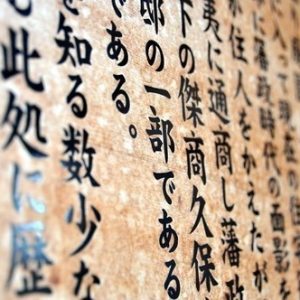 に藩政時代の面影を
が住人をかえたが
夷に通商し藩政
下の傑商久保
邸の一部である
である。
を知る数少な
此処に歴